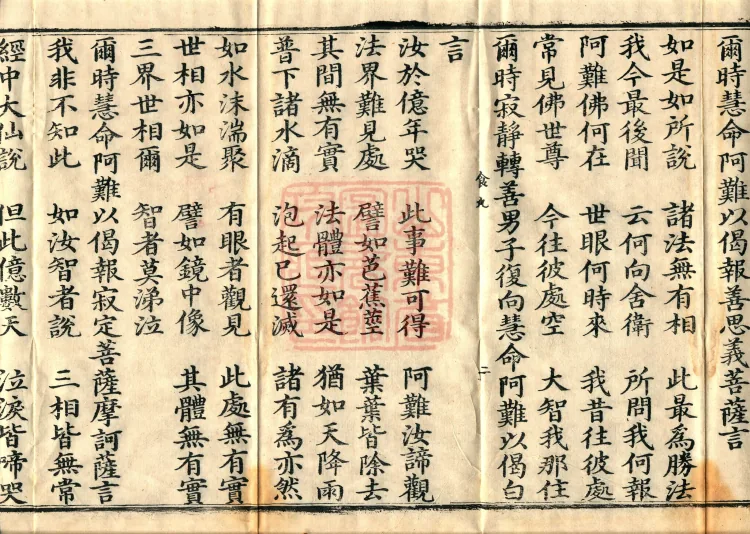 爾時慧命阿難以偈報善思義菩薩言
如是如所說 諸法無有相 此最爲勝法
我今最後聞 云何向舍衛 所問我何報
阿難佛何在 世眼何時來 我昔往彼處
常見佛世尊 今往彼處空 大智我那住
爾時寂靜轉善男子復向慧命阿難以偈白
食九 二
言
汝於億年哭 此事難可得 阿難汝諦觀
法界難見處 譬如芭蕉莖 葉葉皆除去
其間無有實 法體亦如是 猶如天降雨
普下諸水滴 泡起已還滅 諸有爲亦然
如水沫湍聚 有眼者觀見 此處無有實
世相亦如是 譬如鏡中像 其體無有實
三界世相爾 智者莫涕泣
爾時慧命阿難以偈報寂定菩薩摩訶薩言
我非不知此 如汝智者說 三相皆無常
經中大仙說 但此億數天 泣淚皆啼哭